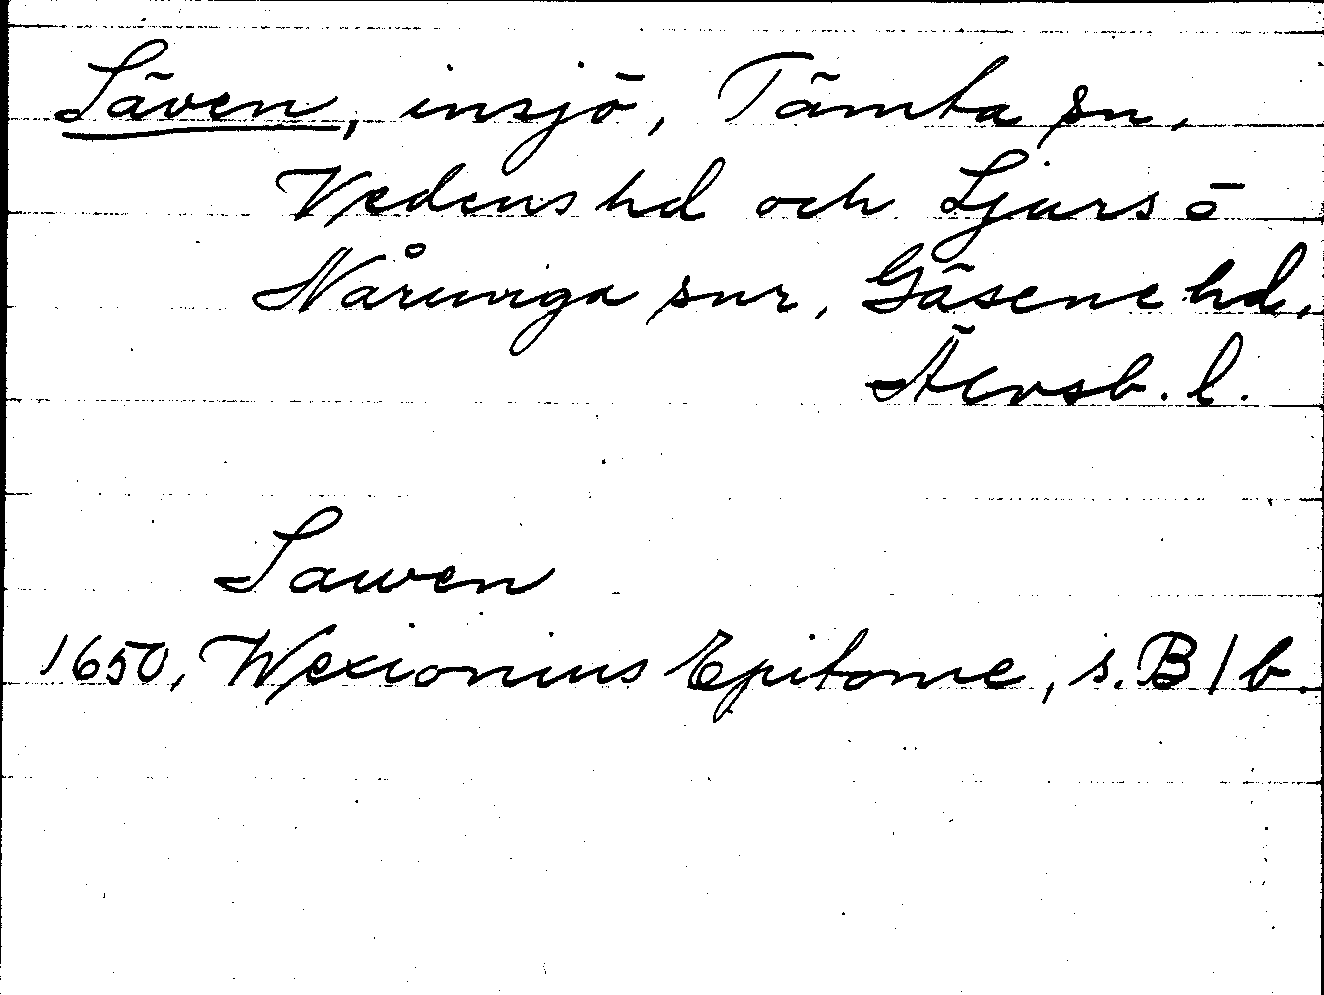 Säven, insjö, Tämta sn,
Vedens hd och Ljurs o
Nårunga snr, Gäsene hd,
Älvsb. l.
Sawen
1650, Wexionius Epitome, s. B 1 b.